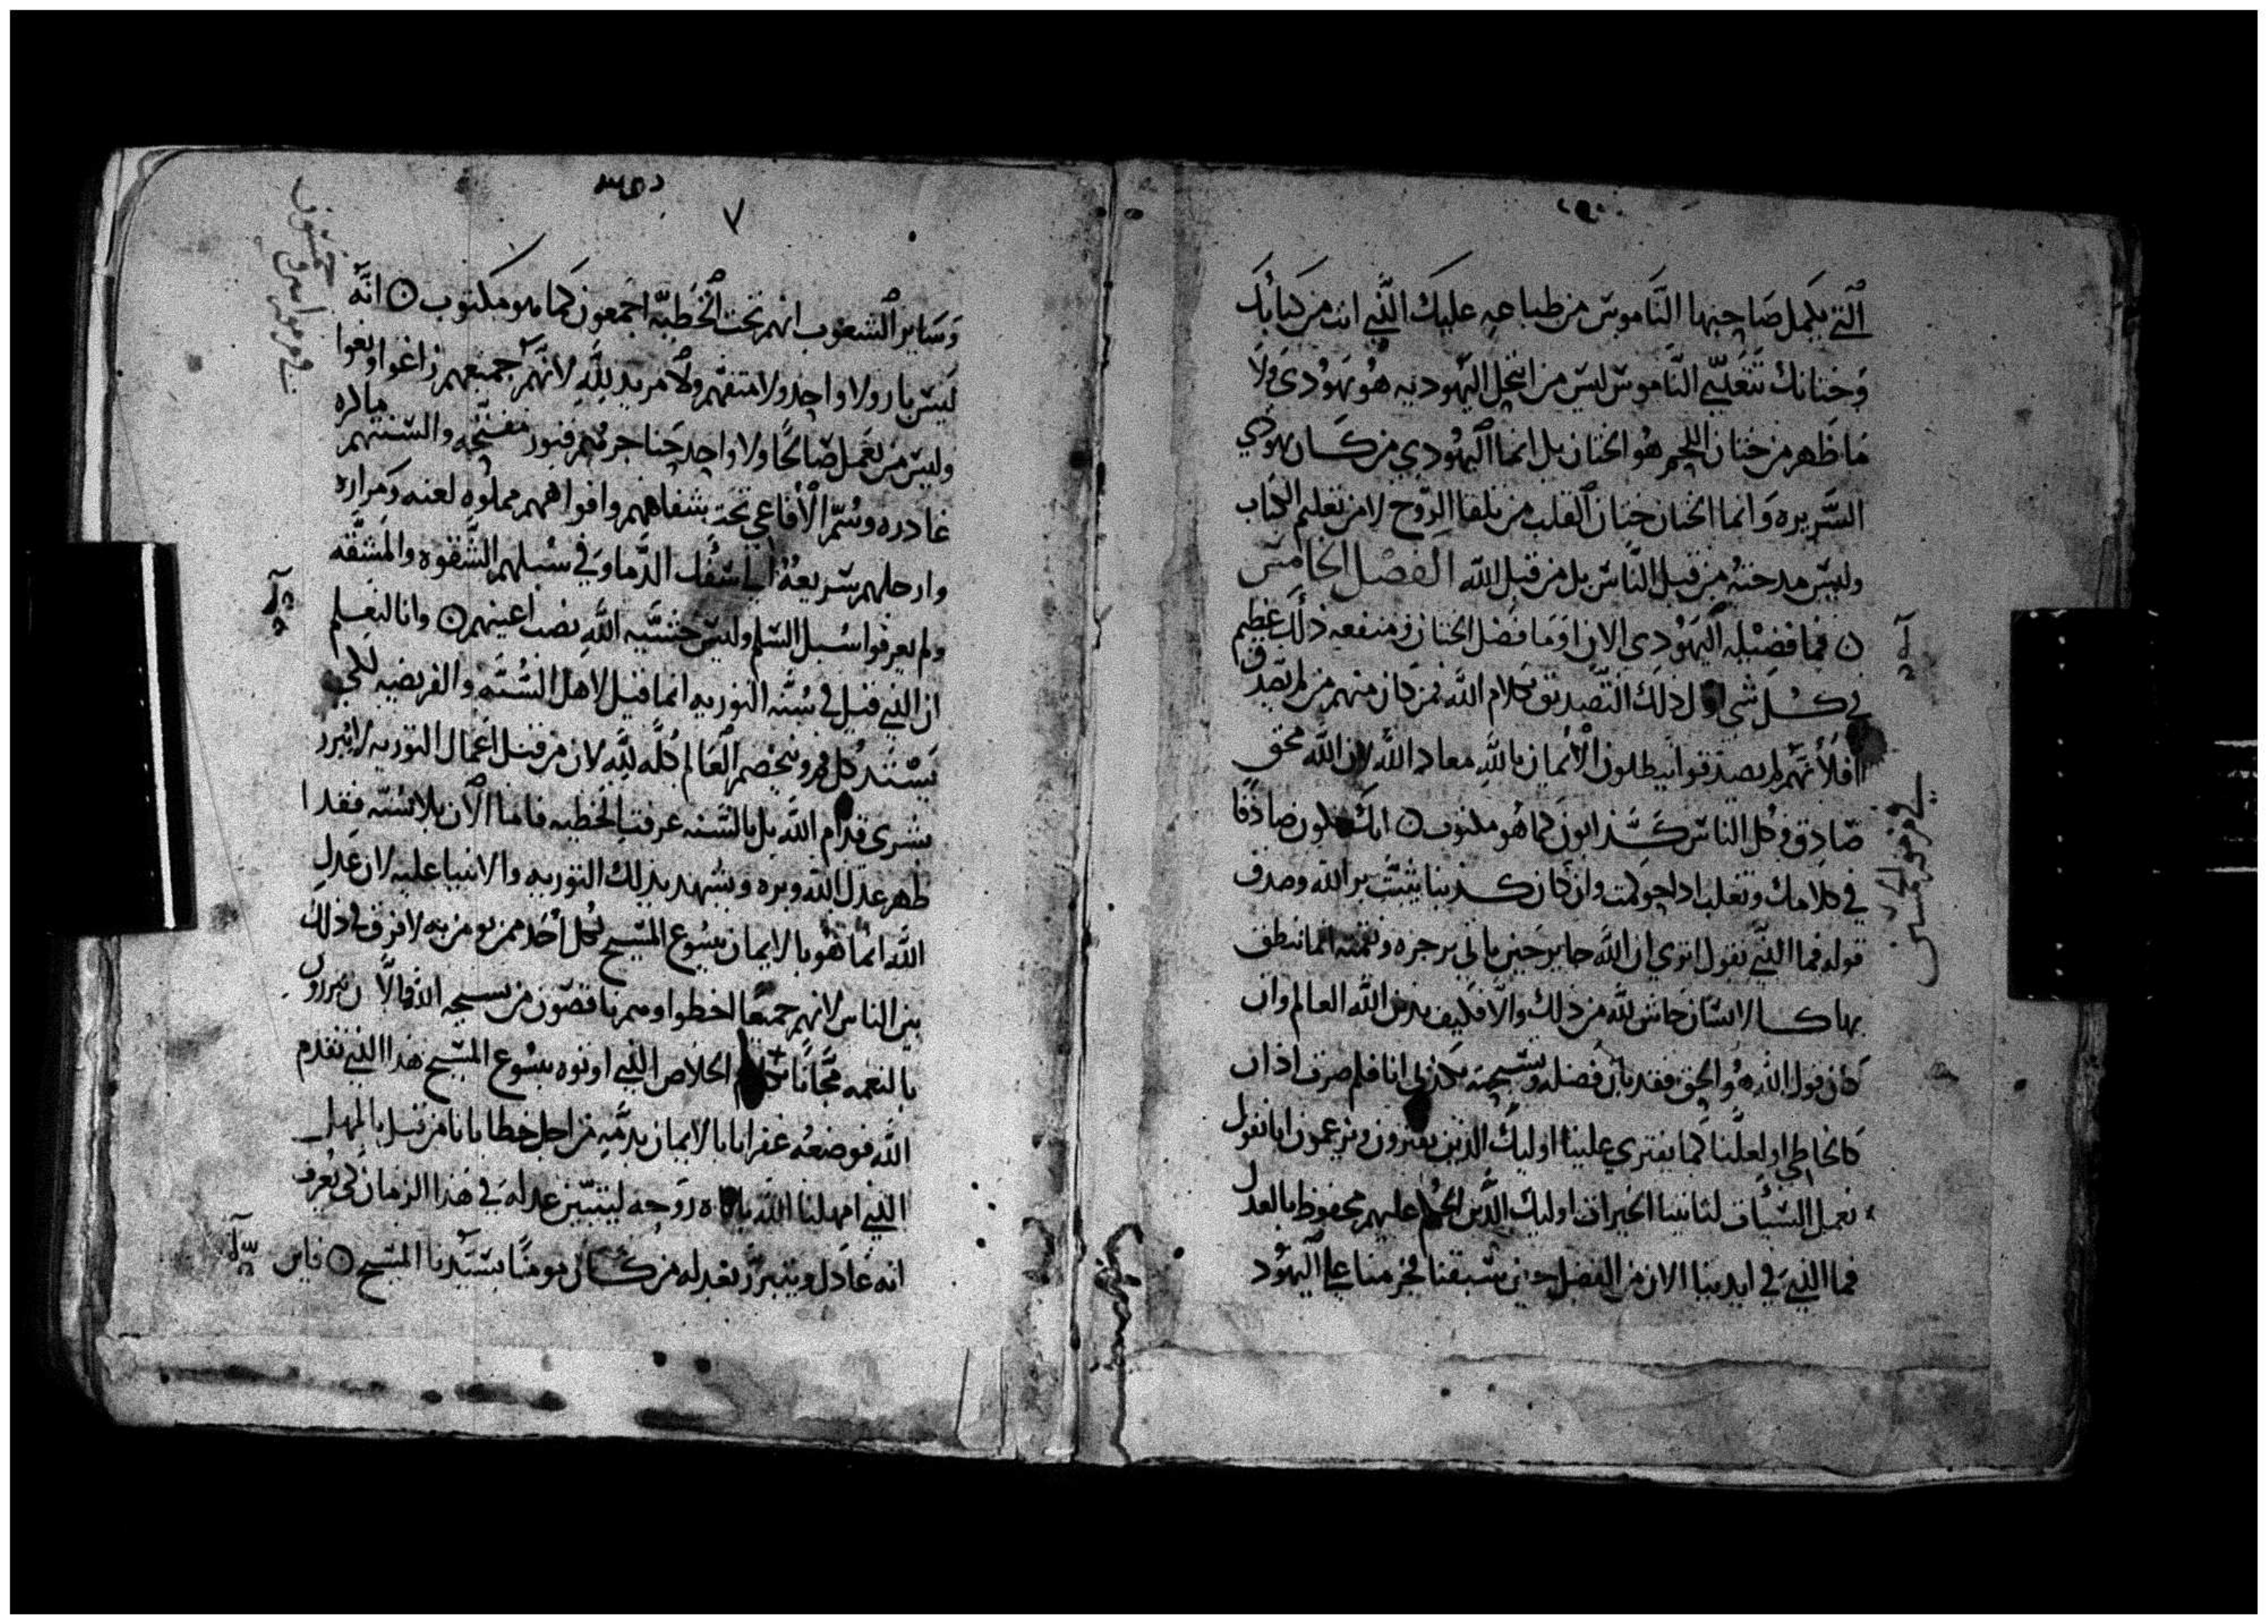 التي يكمل صاحبها الناموس من طباعه عليك الذي انت من كتابك
وختانك تتعدي الناموس ليس من انتحل اليهوديه هو يهودي ولا
ما ظهر من ختان اللحم هو الختان بل انما اليهودي من كان يهودي
السريره وانما الختان ختان القلب من تلقا الروح لا من تعليم الكتاب
وليس مدحته من قبل الناس بل من قبل الله الفصل الخامس
ن فما فضيله اليهودي الان او ما فضل الختان ومنفعه ذلك عظيم
في كل شي اول ذلك التصديق بكلام الله فمن كان منهم من لم يصدق
افلانهم لم يصدقوا يبطلون الايمان بالله معاد الله لان الله محق
صادق وكل الناس كذابون كما هو مكتوب ن انك تكون صادقا
في كلامك وتغلب ادا حوكمت وان كان كذبنا يثبت بر الله وصدق
قوله فما الذي نقول اتري ان الله جاير حين ياتي برجزه ونقمته انما ننطق
بهاكالانسان حاش لله من ذلك والا فكيف يدين الله العالم وان
كان قول الله هو الحق فقد بان فضله وتسبحته بكذبي انا فلم صرت اذا ان
كالخاطي او لعلنا كما يفتري علينا اوليك الذين يفترون ويزعمون انا نقول
نعمل السيات لتاتينا الخيرات اوليك الذين الحكم عليهم محفوظ بالعدل
فما الذي في ايدينا الان من الفضل حين سبقنا فجزمنا علي اليهود
٧
وساير الشعوب انهم تحت الخطيه اجمعون كما هو مكتوب ن انه
ليس بار ولا واحد ولا متفهم ولا مريد لله لانهم جميعهم زاغوا وبغوا
وليس من يعمل صالحا ولا واحد حناجرهم قبور مفتحه والسنتهم
غادره وسم الافاعي تحت شفاههم وافواههم مملوه لعنه ومراره
وارجلهم سريعه الي سفك الدما وفي سبلهم الشقوه والمشقه
ولم يعرفوا سبل السلم وليس خشيه الله نصب اعينهم ن وانا لنعلم
ان الذي قيل في سنه التوريه انما قيل لاهل السنه والفريضيه لكي
يستد كل فم ويخصم العالم كله لله لان من قبل اعمال التوريه لا يبرر
بشري قدام الله بل بالسنه عرفت الخطيه فاما الان بلا سنه فقد ا
ظهر عدل الله وبره ويشهد بذلك التوريه والانبيا عليه لان عدل
الله انما هو بالايمان بيسوع المسيح لكل احد ممن يومن به لا فرق في ذلك
بين الناس لانهم جميعا اخطوا وهم ناقصون من تسبحه الله والان يبررون
بالنعمه مجانا الخلاص الذي اوتوه بيسوع المسيح هذا الذي تقدم
الله فوضعه غفرانا بالايمان بدمه من اجل خطايانا من قبل بالمهل
الذي امهلنا الله روحه ليتبين عدله في هذا الزمان لكي يعرف
انه عادل ويتبرر بعدله من كان مومنا بسيدنا المسيح ن فاين